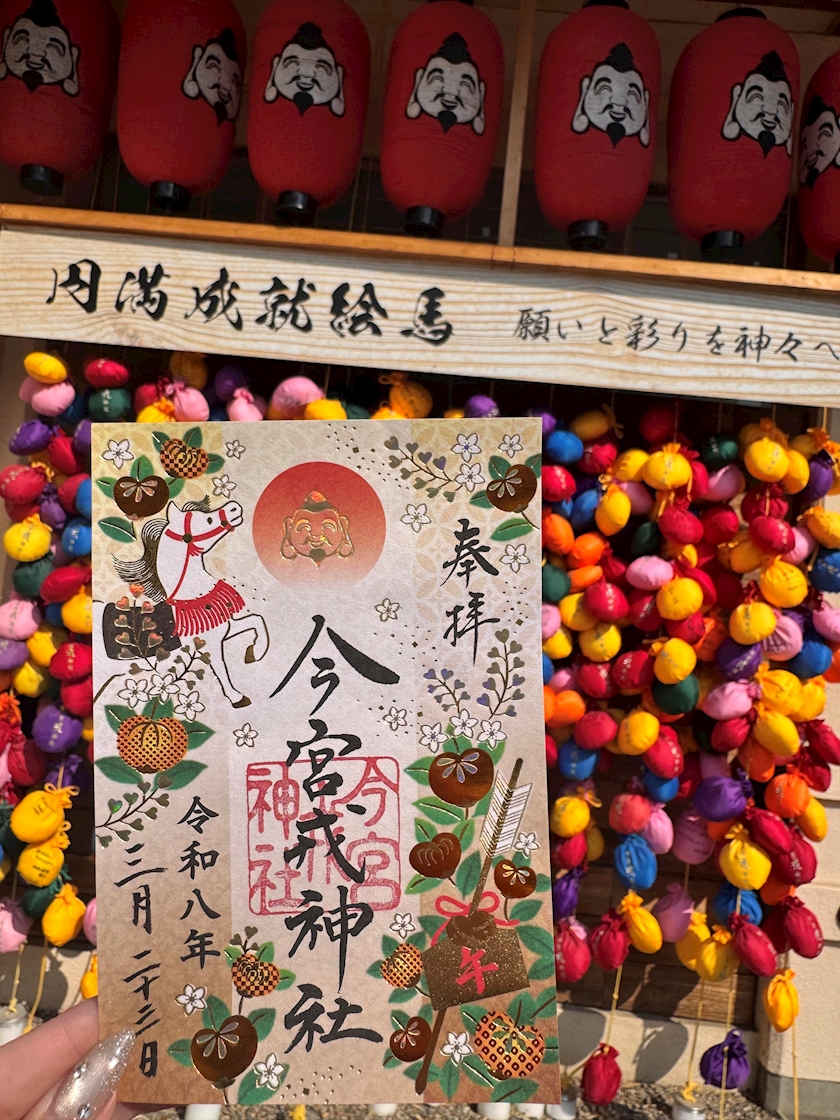 円満成就絵馬
願いと彩りを神々へ
奉拝
今宮戎神社
今宮
戎
神社
令和八年
三月二十二日
午